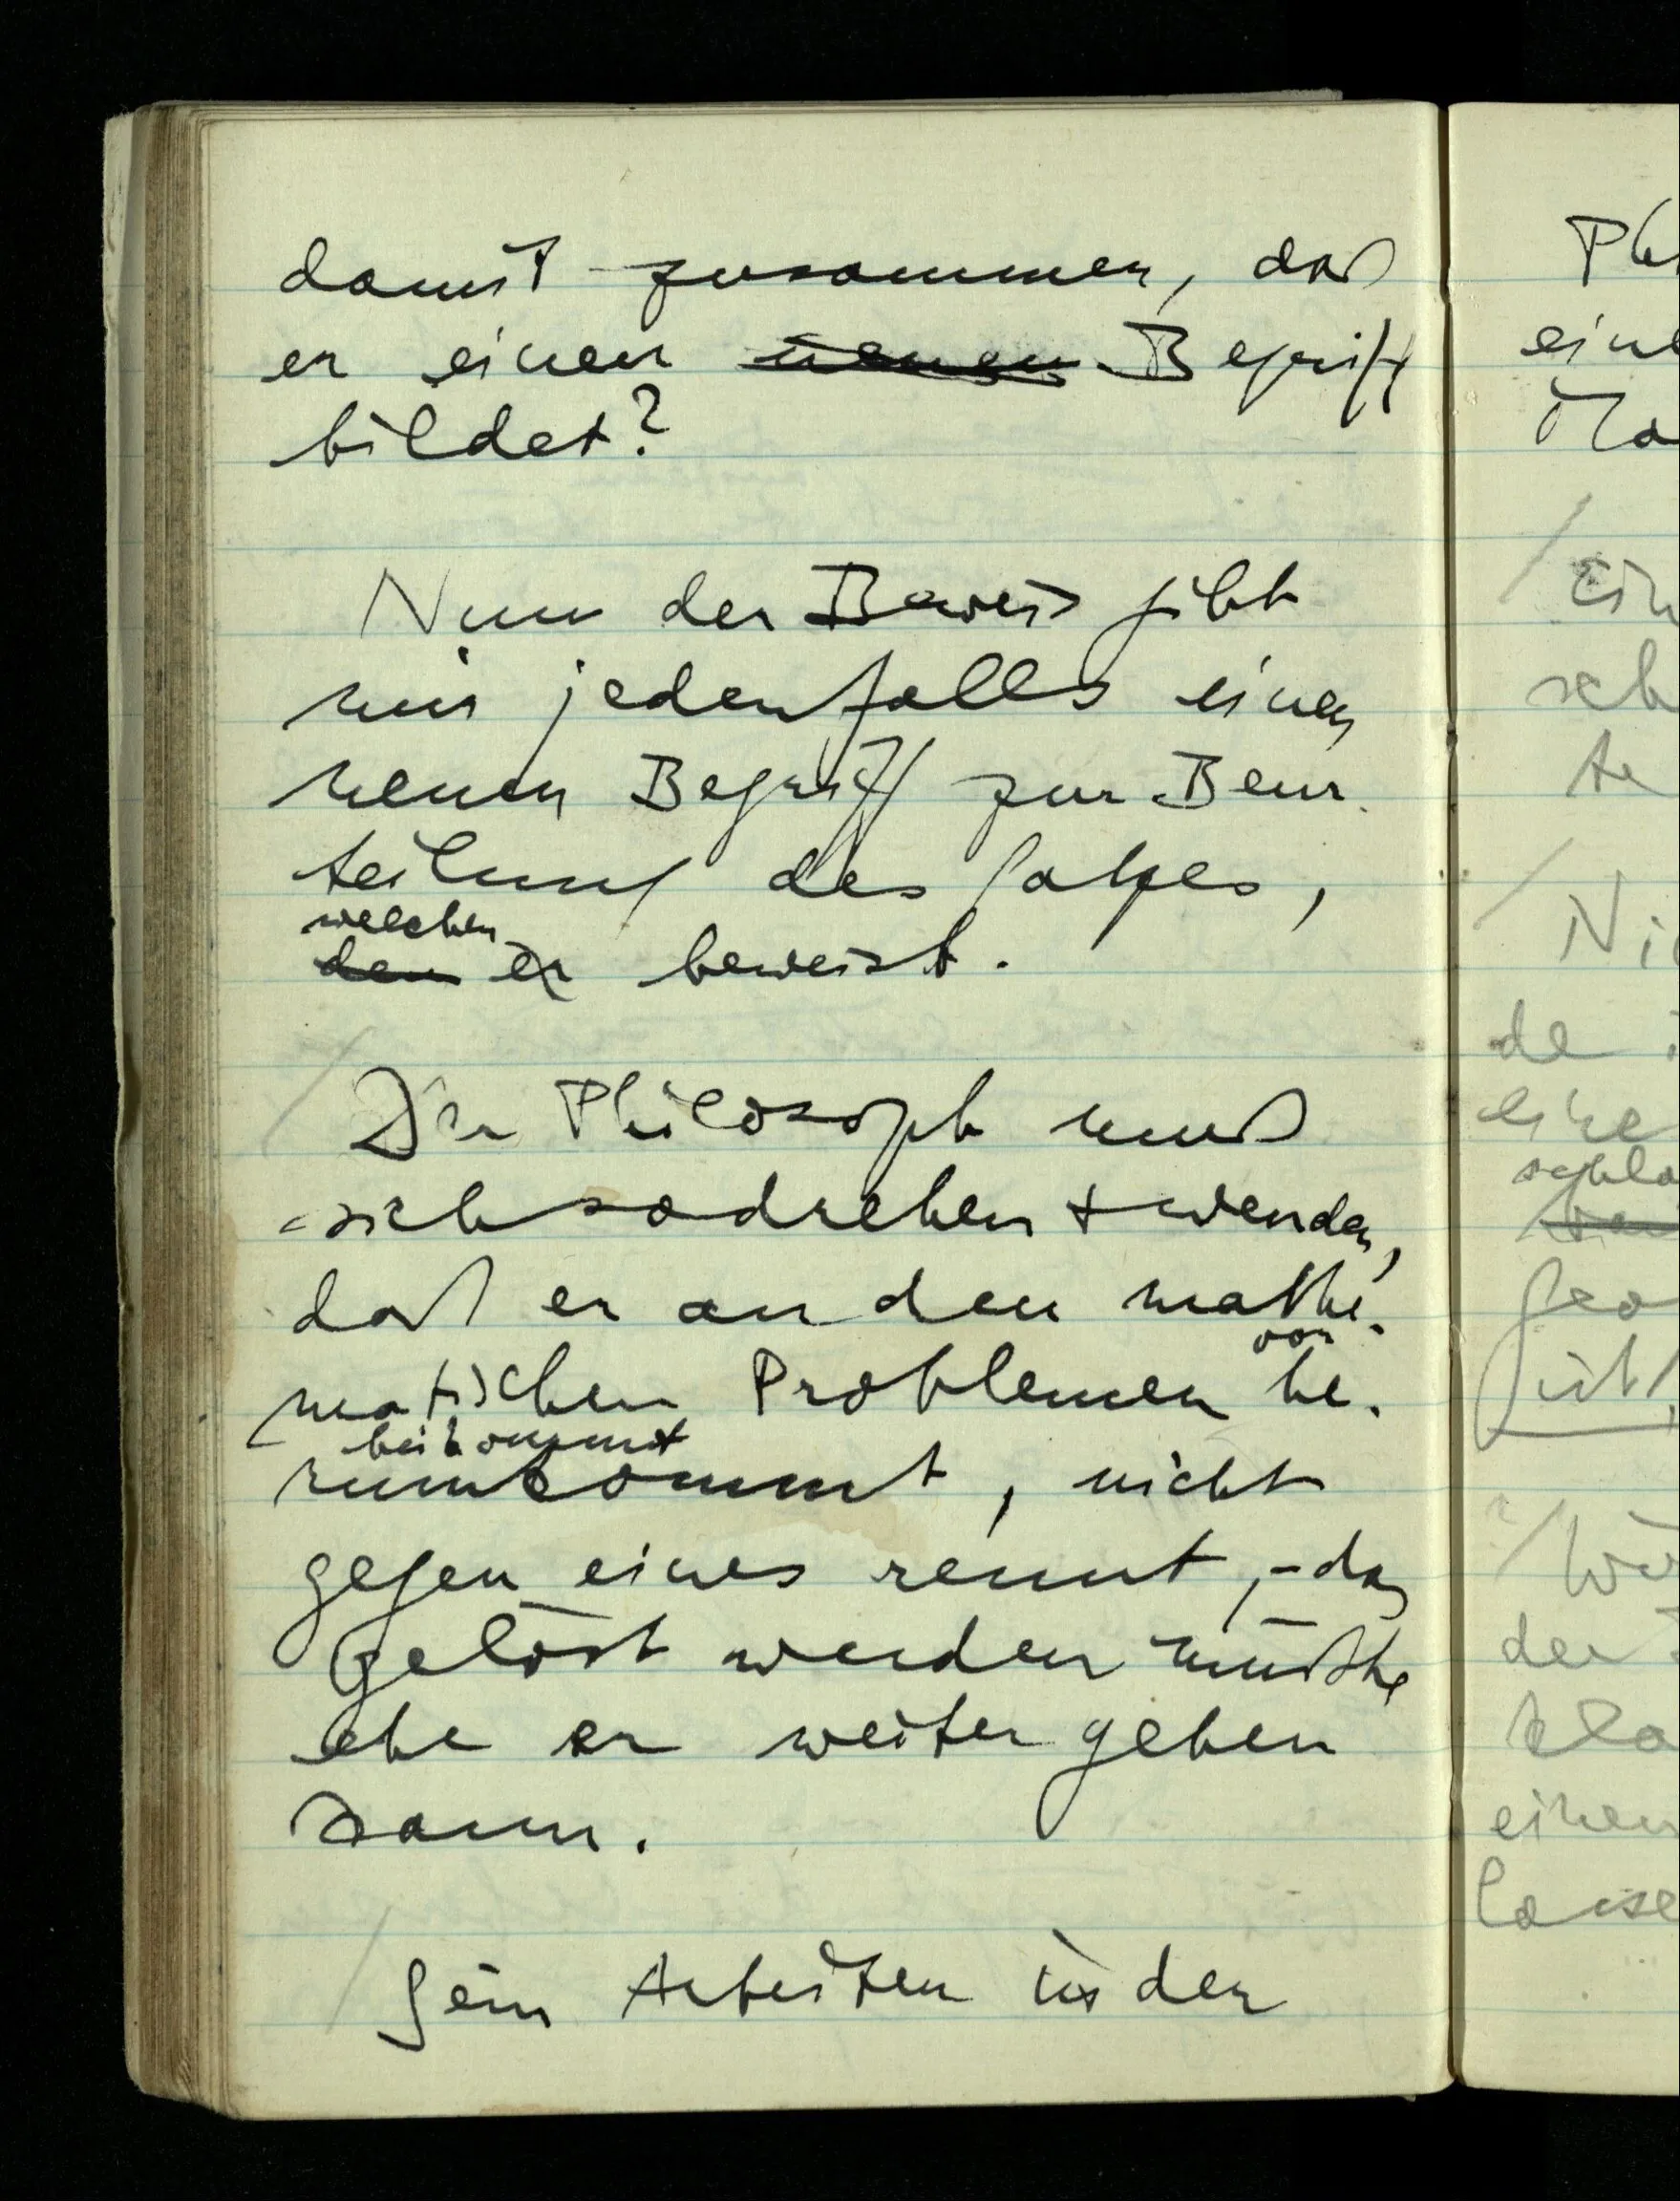 damit zusammen, daß
er einen neuen Begriff
bildet?
Nun der Beweis gibt
mir jedenfalls einen
neuen Begriff zur Beur-
teilung des Satzes,
welchen
den er beweist.
Der Philosoph muß
sich so drehen + wenden,
daß er an den mathe-
vor
matischen Problemen he-
beikommt
rumkommt, nicht
gegen eines rennt, – das
gelöst werden müßte
ehe er weiter gehen
kann.
Sein Arbeiten in der
eine
Ein
sch
te
de
eine
schla
geo
der
kla
einen